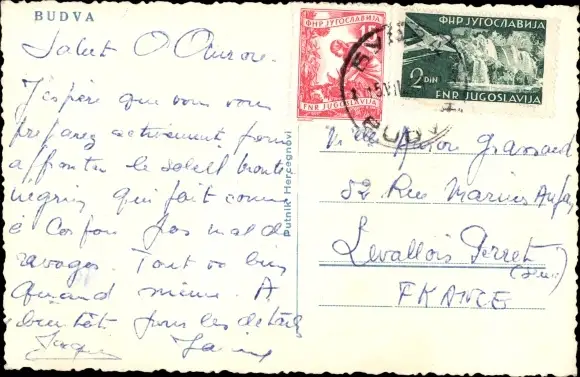 BUDVA
Salut O Aurore.
J'espère que vous vous
préparez activement pour
affronter le soleil monté
négrin qui fait comme
à Corfou pas mal de
ravages. Tout va bien
quand même. A
bientôt pour les détails
Putnik Hercegnovi
ФНР ЈУГОСЛАВИЈА
15
FNR JUGOSLAVIJA
ФНР ЈУГОСЛАВИЈА
2 DIN
FNR JUGOSLAVIJA
Melle Aurore
52 Rue Marius Aufan
Levallois Perret
FRANCE